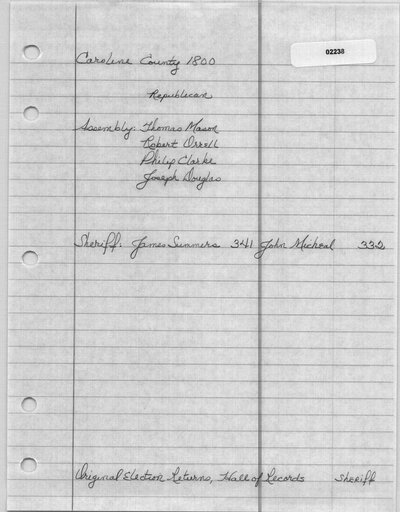 02238
Caroline County 1800
Republican
Assembly: Thomas Mason
Robert Orrell
Philip Clarke
Joseph Douglas
Sheriff: James Summers 341 John Micheal 332
Original Election Returns, Hall of Records Sheriff